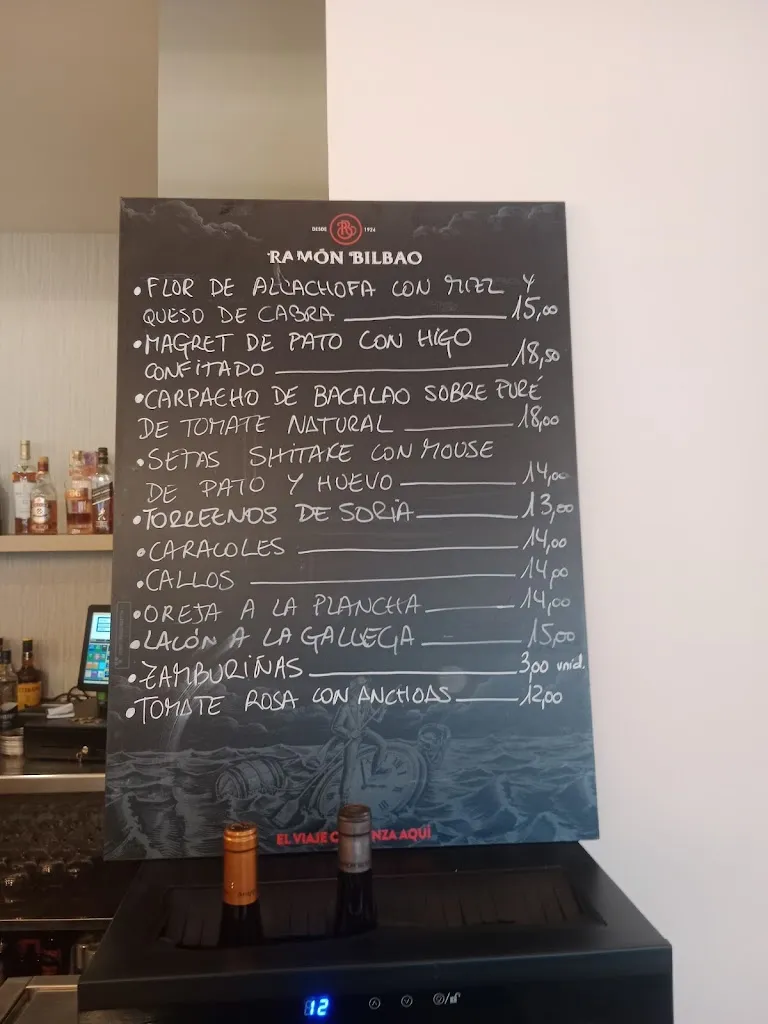 DESDE 1924
RAMÓN BILBAO
•FLOR DE ALCACHOFA CON MIEL Y
QUESO DE CABRA 15,00
•MAGRET DE PATO CON HIGO
CONFITADO 18,50
•CARPACHO DE BACALAO SOBRE PURÉ
DE TOMATE NATURAL 18,00
•SETAS SHITAKE CON MOUSE
DE PATO Y HUEVO 14,00
•TORREENOS DE SORIA 13,00
•CARACOLES 14,00
•CALLOS 14,00
•OREJA A LA PLANCHA 14,00
•LACÓN A LA GALLEGA 15,00
•ZAMBURIÑAS 3,00 unid.
•TOMATE ROSA CON ANCHOAS 12,00
EL VIAJE C NZA AQUÍ
12